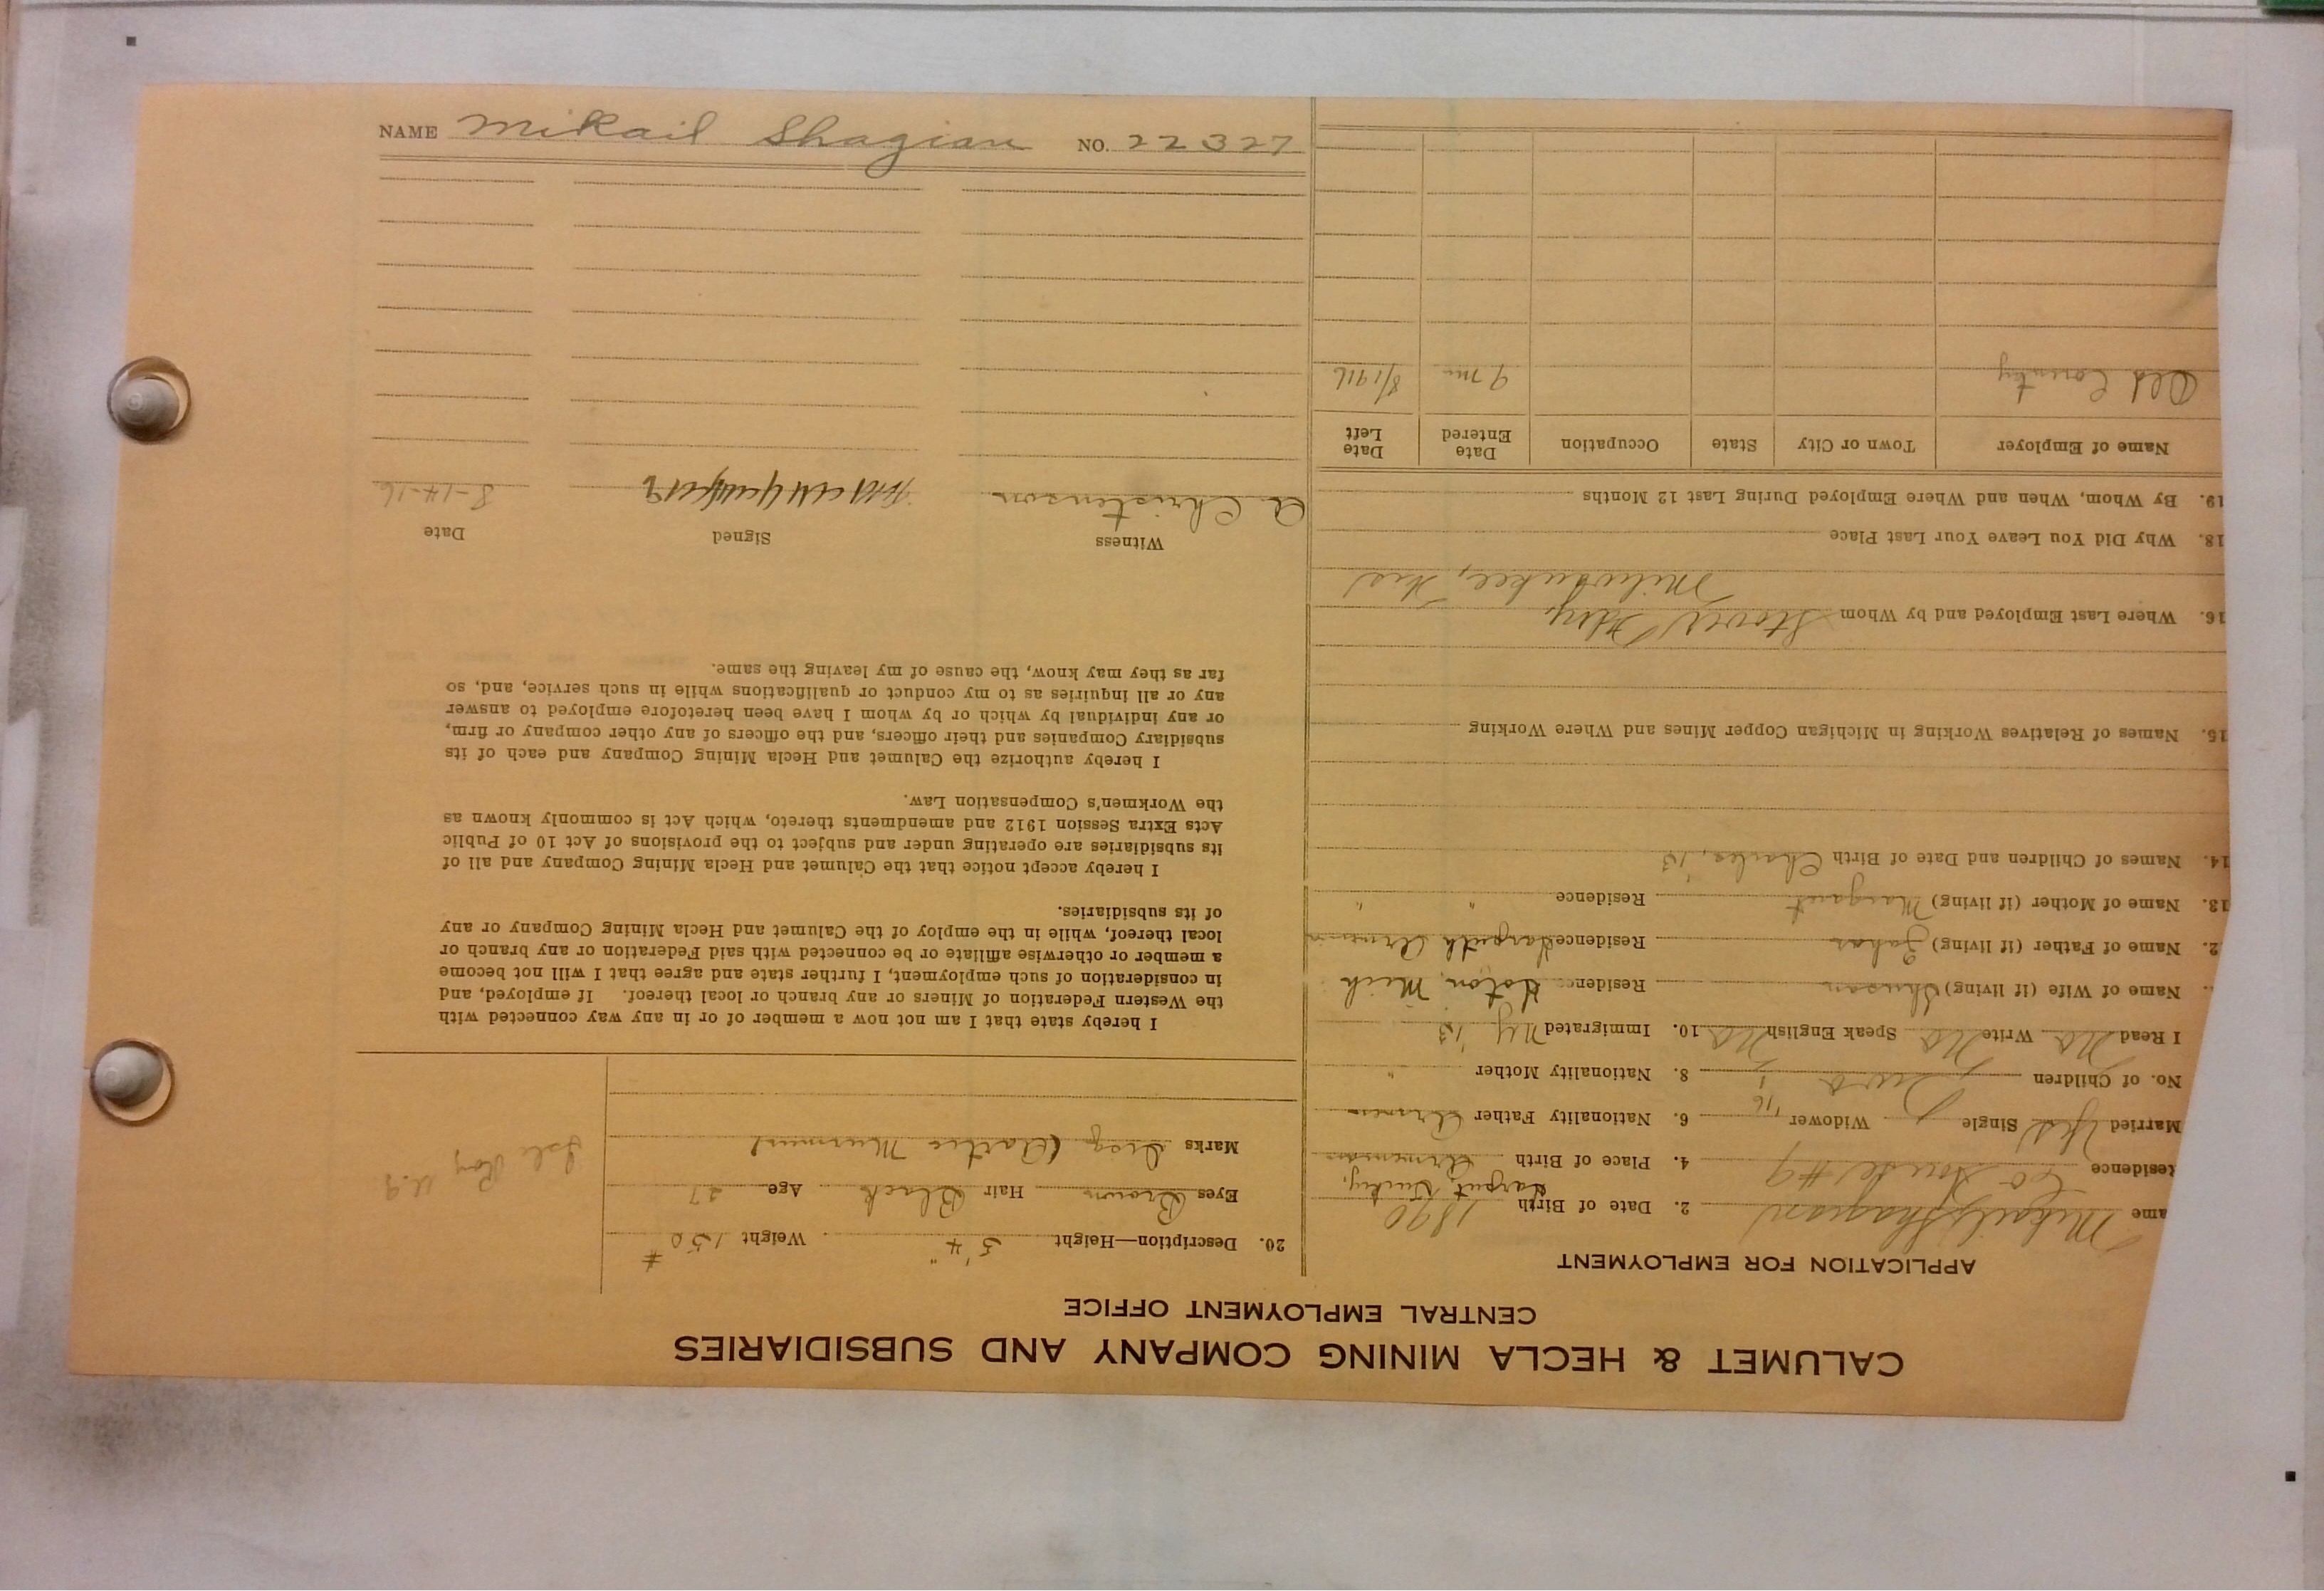 NAME Mikail Shagian NO. 22327
CALUMET & HECLA MINING COMPANY AND SUBSIDIARIES
CENTRAL EMPLOYMENT OFFICE
APPLICATION FOR EMPLOYMENT
ame Mikail Shagian 2. Date of Birth 1890
Residence Co House #9 4. Place of Birth Harput, Turkey, Armenia
Married Yes Single Widower 6. Nationality Father Armen
No. of Children Two 8. Nationality Mother "
I Read No Write No Speak English No 10. Immigrated NY '13
Name of Wife (if living) Shusan Residence Mich
2. Name of Father (if living) Residence Harputh Armenia
13. Name of Mother (if living) Margaret Residence " "
14. Names of Children and Date of Birth Charles, '13
15. Names of Relatives Working in Michigan Copper Mines and Where Working
16. Where Last Employed and by Whom Stove
Milwaukee, Wis
18. Why Did You Leave Your Last Place
19. By Whom, When and Where Employed During Last 12 Months
Name of Employer Town or City State Occupation Date Entered Date Left
Old Country 9 mo. 8/1916
20. Description—Height 5' 4" Weight 150 #
Eyes Brown Hair Black Age 27
Marks
Isle Roy
I hereby state that I am not now a member of or in any way connected with
the Western Federation of Miners or any branch or local thereof. If employed, and
in consideration of such employment, I further state and agree that I will not become
a member or otherwise affiliate or be connected with said Federation or any branch or
local thereof, while in the employ of the Calumet and Hecla Mining Company or any
of its subsidiaries.
I hereby accept notice that the Calumet and Hecla Mining Company and all of
its subsidiaries are operating under and subject to the provisions of Act 10 of Public
Acts Extra Session 1912 and amendments thereto, which Act is commonly known as
the Workmen's Compensation Law.
I hereby authorize the Calumet and Hecla Mining Company and each of its
subsidiary Companies and their officers, and the officers of any other company or firm,
or any individual by which or by whom I have been heretofore employed to answer
any or all inquiries as to my conduct or qualifications while in such service, and, so
far as they may know, the cause of my leaving the same.
Witness Signed Date
A Christenson 8-14-16